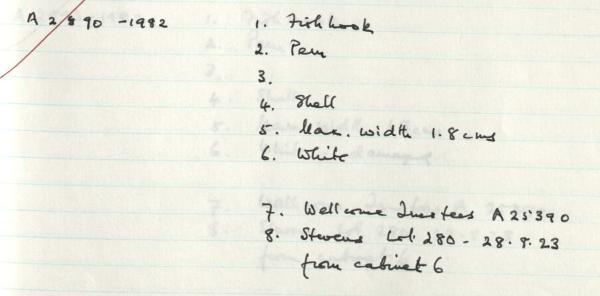 A 2890 - 1982
1. Fish hook
2. Peru
3.
4. Shell
5. Max. width 1.8 cms
6. White
7. Wellcome Trustees A 25390
8. Stevens Lot 280 - 28.8.23
from cabinet 6